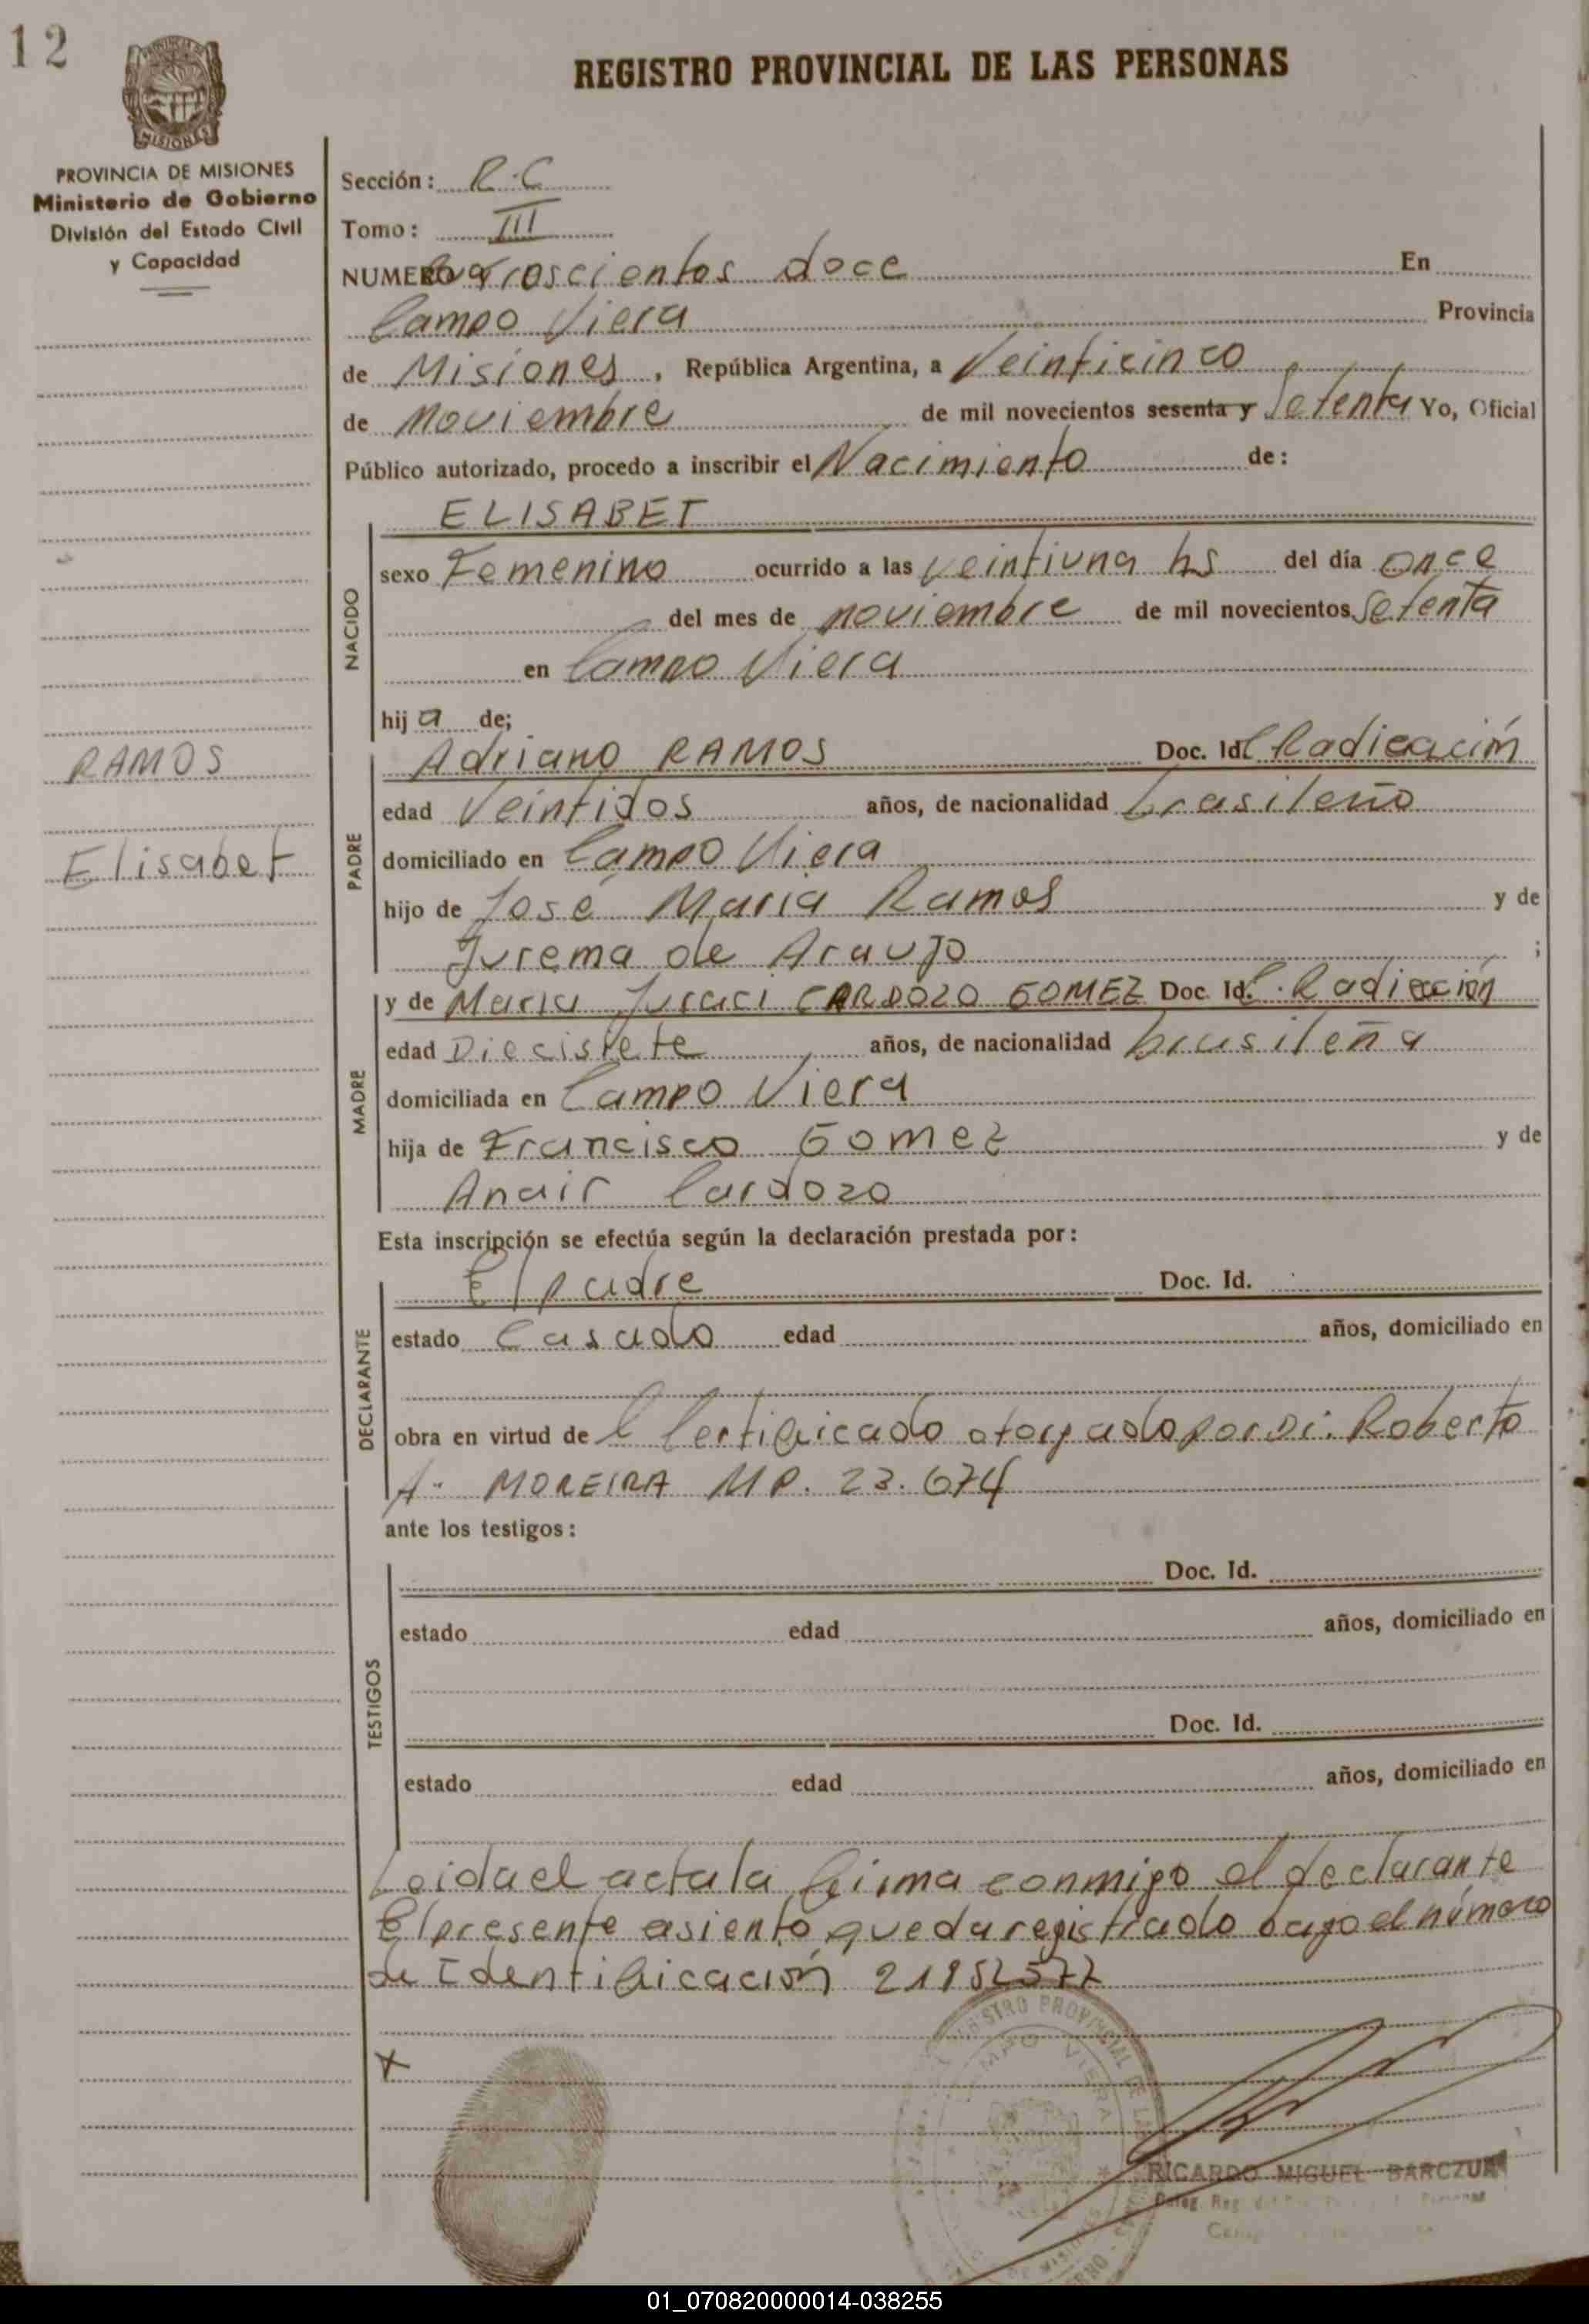 12
REGISTRO PROVINCIAL DE LAS PERSONAS
MISIONES
PROVINCIA DE MISIONES
Ministerio de Gobierno
División del Estado Civil
y Capacidad
Sección: R.C
Tomo: III
NUMERO Cuatroscientos doce En
Campo Viera Provincia
de Misiones, República Argentina, a Veinticinco
de noviembre de mil novecientos sesenta y Setenta Yo, Oficial
Público autorizado, procedo a inscribir el Nacimiento de:
ELISABET
NACIDO
sexo Femenino ocurrido a las veintiuna hs del día once
del mes de noviembre de mil novecientos Setenta
en Campo Viera
hija de;
RAMOS
Elisabet
PADRE
Adriano RAMOS Doc. Id. C Radicación
edad Veintidos años, de nacionalidad brasileño
domiciliado en Campo Viera
hijo de José Maria Ramos y de
Jurema de Araujo ;
MADRE
y de Maria Juraci CARDOZO GOMEZ Doc. Id. C. Radicación
edad Diecisiete años, de nacionalidad brasileña
domiciliada en Campo Viera
hija de Francisco Gomez y de
Anair Cardozo
Esta inscripción se efectúa según la declaración prestada por:
DECLARANTE
El padre Doc. Id.
estado Casado edad años, domiciliado en
obra en virtud de l Certificado otorgado por Dr. Roberto
A. MOREIRA M P. 23.674
ante los testigos:
TESTIGOS
Doc. Id.
estado edad años, domiciliado en
Doc. Id.
estado edad años, domiciliado en
Leida el acta la firma conmigo el declarante
El presente asiento queda registrado bajo el número
de Identificación 21852577
X
REGISTRO PROVINCIAL DE LAS
CAMPO VIERA
RICARDO MIGUEL BARCZUK
01_070820000014-038255